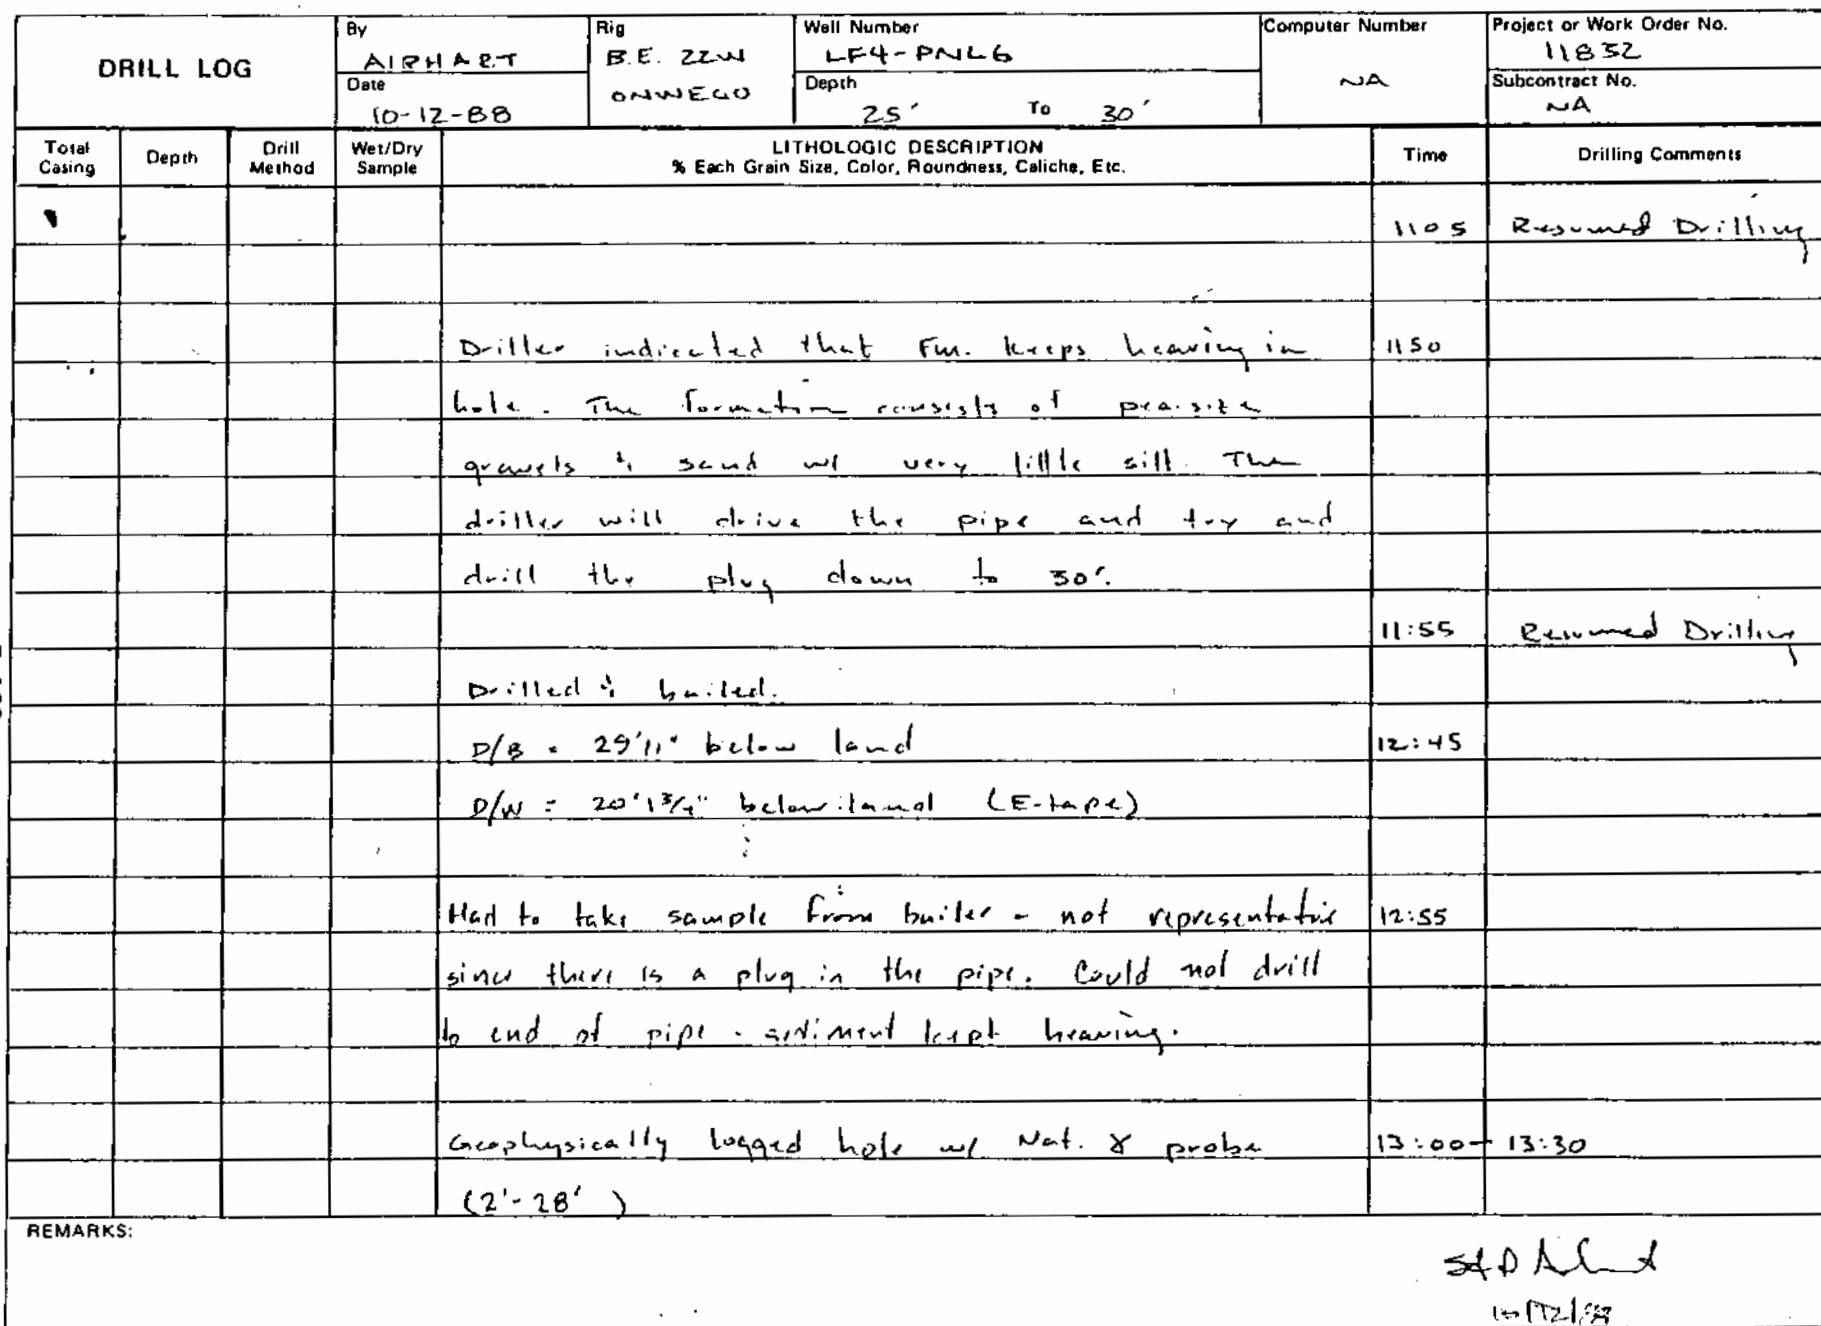 DRILL LOG
By
AIRHART
Date
10-12-88
Rig
B.E. 22W
ONWEGO
Well Number
LF4-PNL6
Depth
25' To 30'
Computer Number
NA
Project or Work Order No.
11832
Subcontract No.
NA
Total Casing
Depth
Drill Method
Wet/Dry Sample
LITHOLOGIC DESCRIPTION
% Each Grain Size, Color, Roundness, Caliche, Etc.
Time
Drilling Comments
1105 Resumed Drilling
Driller indicated that Fm. keeps heaving in 1150
hole. The formation consists of pea-size
gravels & sand w/ very little silt. The
driller will drive the pipe and try and
drill the plug down to 30'.
11:55 Resumed Drilling
Drilled & bailed.
D/B = 29'11" below land 12:45
D/W = 20'1 3/4" below land (E-tape)
Had to take sample from bailer - not representative 12:55
since there is a plug in the pipe. Could not drill
to end of pipe - sediment kept heaving.
Geophysically logged hole w/ Nat. γ probe 13:00 - 13:30
(2'-28')
REMARKS:
10/12/88